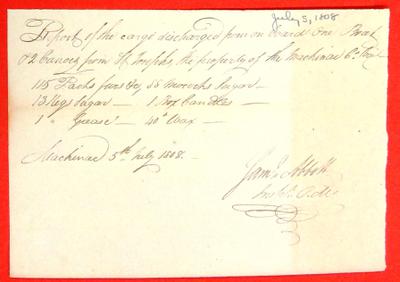 July 5, 1808
Report of the cargo discharged from on board One Boat
& 2 Canoes from St Josephs the property of the Machinac Co. Viz
115 Packs furs &c 55 Mococks Sugar
13 Kegs Sugar — 1 Box Candles —
1 " Grease — 40 lb Wax —
Machinac 5th July 1808.
Jams Abbott